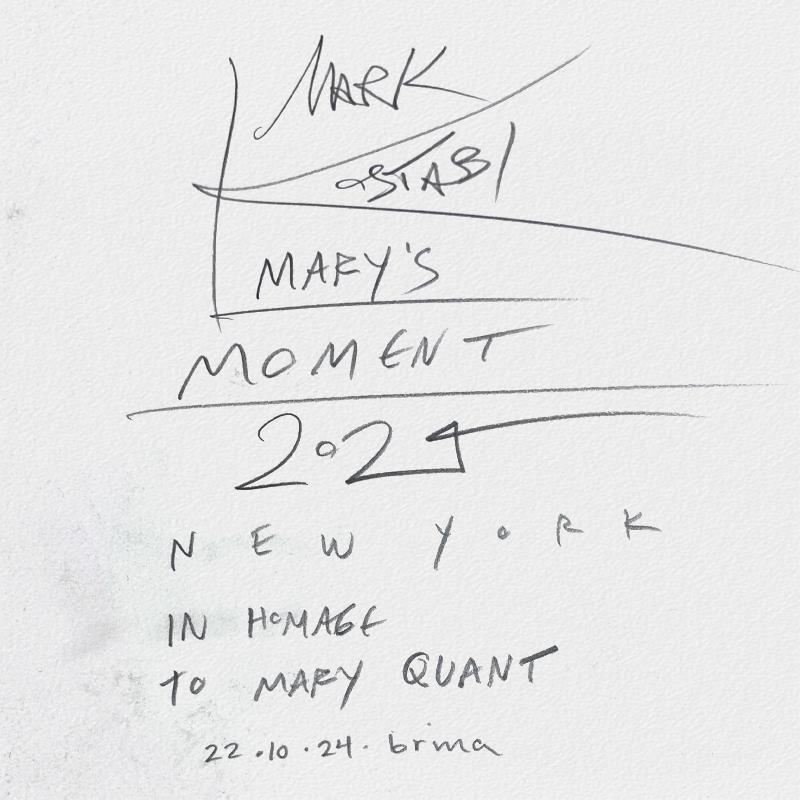 MARK
KOSTABI
MARY'S
MOMENT
2024
NEW YORK
IN HOMAGE
TO MARY QUANT
22.10.24. brima